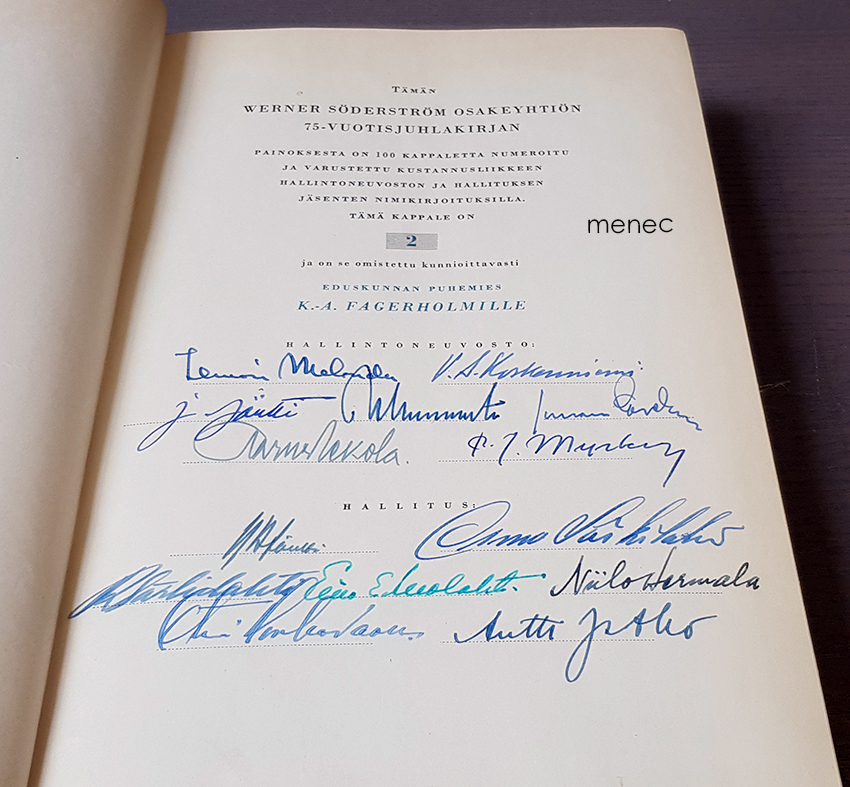 TÄMÄN
WERNER SÖDERSTRÖM OSAKEYHTIÖN
75-VUOTISJUHLAKIRJAN
PAINOKSESTA ON 100 KAPPALETTA NUMEROITU
JA VARUSTETTU KUSTANNUSLIIKKEEN
HALLINTONEUVOSTON JA HALLITUKSEN
JÄSENTEN NIMIKIRJOITUKSILLA.
TÄMÄ KAPPALE ON
menec
2
ja on se omistettu kunnioittavasti
EDUSKUNNAN PUHEMIES
K.-A. FAGERHOLMILLE
HALLINTONEUVOSTO:
V. A. Koskenniemi
J. Jäntti
P. J. Myrberg
HALLITUS:
Niilo Hermala
Antti Jatko